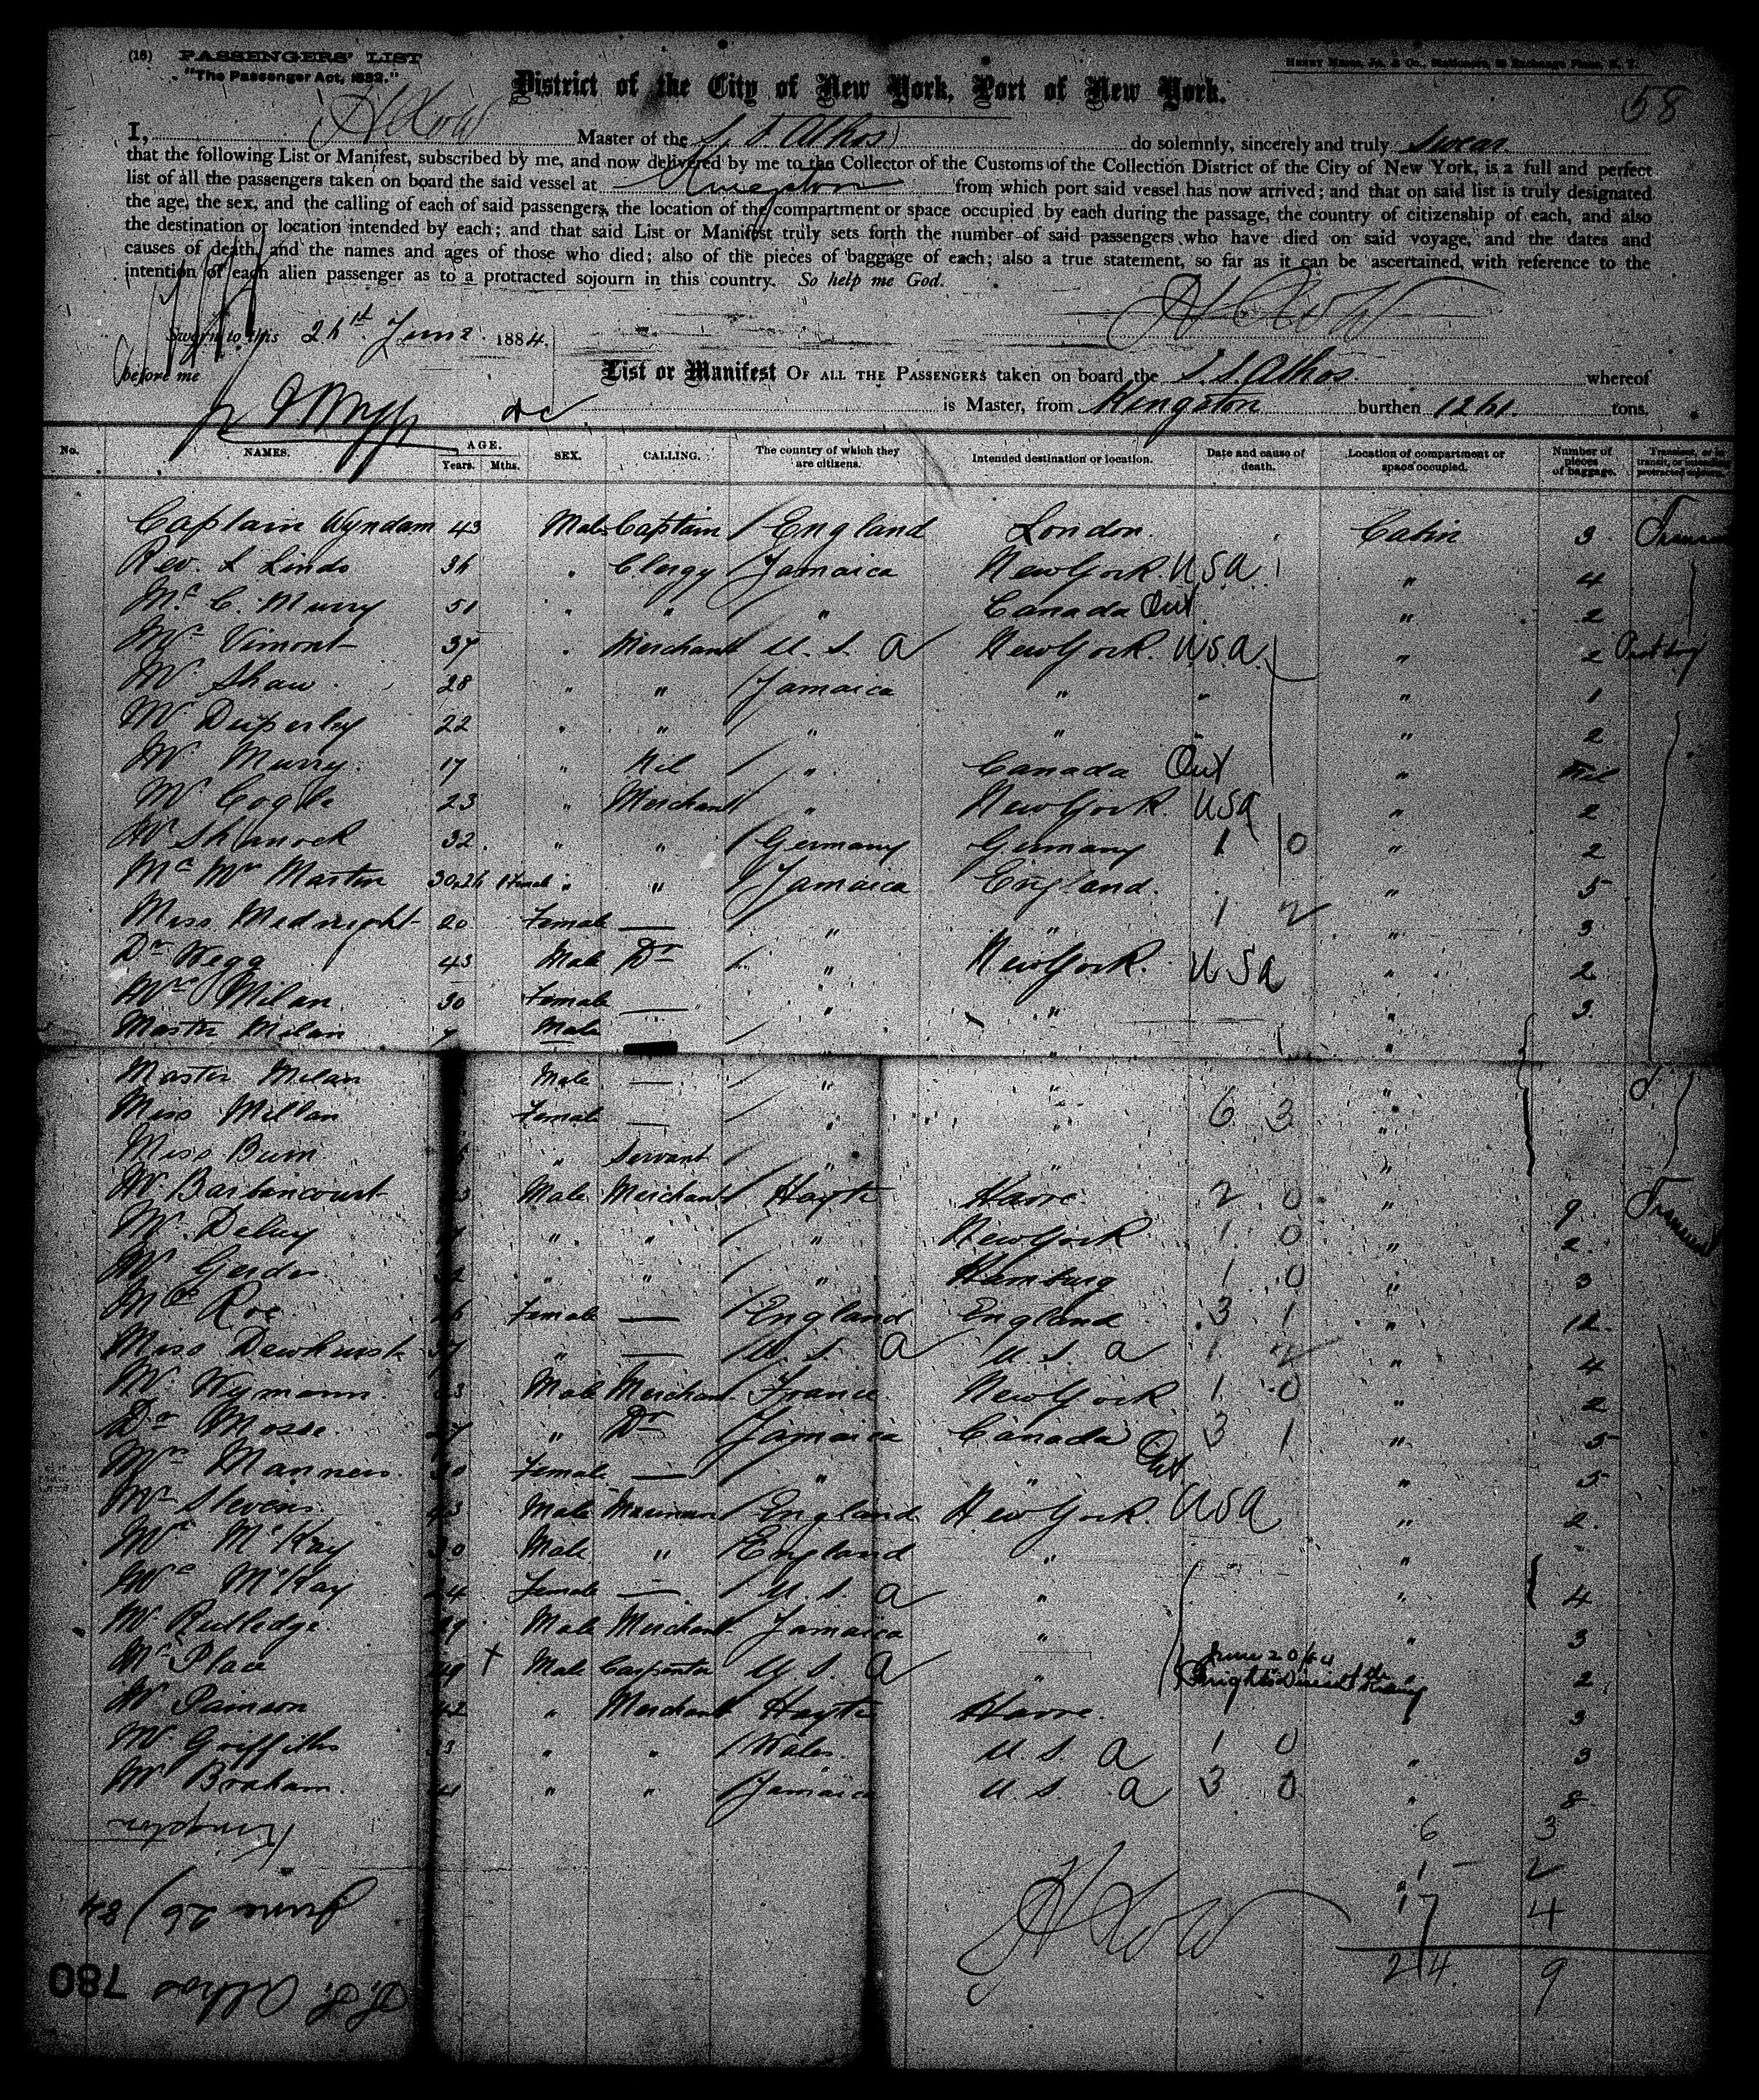 (16) PASSENGERS' LIST
"The Passenger Act, 1882."
HENRY Jr. & Co., Stationers, Exchange Place, N. Y.
District of the City of New York, Port of New York.
58
I, H Low Master of the S. S. Athos do solemnly, sincerely and truly swear
that the following List or Manifest, subscribed by me, and now delivered by me to the Collector of the Customs of the Collection District of the City of New York, is a full and perfect
list of all the passengers taken on board the said vessel at Kingston from which port said vessel has now arrived; and that on said list is truly designated
the age, the sex, and the calling of each of said passengers, the location of the compartment or space occupied by each during the passage, the country of citizenship of each, and also
the destination or location intended by each; and that said List or Manifest truly sets forth the number of said passengers who have died on said voyage, and the dates and
causes of death, and the names and ages of those who died; also of the pieces of baggage of each; also a true statement, so far as it can be ascertained, with reference to the
intention of each alien passenger as to a protracted sojourn in this country. So help me God.
H Low
Sworn to this 26th June 1884.
before me
List or Manifest OF ALL THE PASSENGERS taken on board the S. S. Athos whereof
is Master, from Kingston burthen 1261 tons.
No. NAMES. AGE. Years. Mths. SEX. CALLING. The country of which they are citizens. Intended destination or location. Date and cause of death. Location of compartment or space occupied. Number of pieces of baggage. Transient, or in transit, or intending protracted sojourn.
Captain Wyndam 43 Male Captain / England London Cabin 3
Rev. L Lindo 36 " Clergy / Jamaica New York. USA " 4
Mr. C. Murry 51 " " / " Canada Out " 2
Mr Vimont 37 " Merchant U. S. A New York. USA " 2
Mr Shaw 28 " " / Jamaica " " " 1
Mr Duperly 22 " " / " " " 2
Mr Murry 17 " Nil / " Canada Out " Nil
Mr Cogle 23 " Merchant / " New York USA " 2
Mr 32 " " / Germany Germany 1 0 " 2
Mr Mrs Martin 30, 26 " " / Jamaica England " 5
Miss Mednight 20 Female — / " " 1 2 " 3
Dr Wegg 43 Male Dr / " New York. USA " 2
Mrs Milan 30 Female — / " " " 3
Master Milan 7 Male / " 1 "
Master Milan Male — / " " "
Miss Millan Female — / " " 6 3 "
Miss Burn " Servant / " " "
Mr Barbancourt Male Merchant / Hayti Havre 2 0 " 9 Transient
Mr Delay " " / " New York 1 0 " 2
Mr Gerdes " " / " Hamburg 1 0 " 3
Mrs Roe Female — / England England 3 1 " 12
Miss Dewhurst 37 " — / U. S. A U. S. A 1 2 " 4
Mr Wymann Male Merchant / France New York 1 0 " 2
Dr Mosse 27 " Dr Jamaica Canada 3 1 " 5
Mrs Manners 30 Female — / " " Out " 5
Mr Stevens 43 Male / England New York. USA " 2
Mr McKay 30 Male " / England " "
Mrs McKay 24 Female — / U. S. A " " 4
Mr Rutledge Male Merchant Jamaica " " 3
Mr Place 49 + Male Carpenter U. S. A " June 20/84 Brights Disease of the Kidney " 2
Mr 42 " Merchant Hayti Havre. " 3
Mr Griffiths " " / Wales U. S. A 1 0 " 3
Mr Braham " " / Jamaica U. S. A 3 0 " 8
6 3
1 2
17 4
24 9
H Low
Kingston
June 26/84
S. S. Athos 780